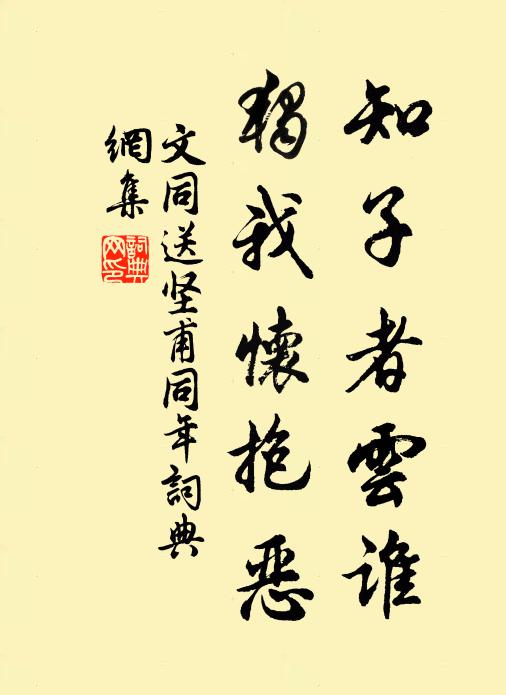 知子者雲誰
獨我懷抱惡
文同送坚甫同年詞典
網集
詞典網印